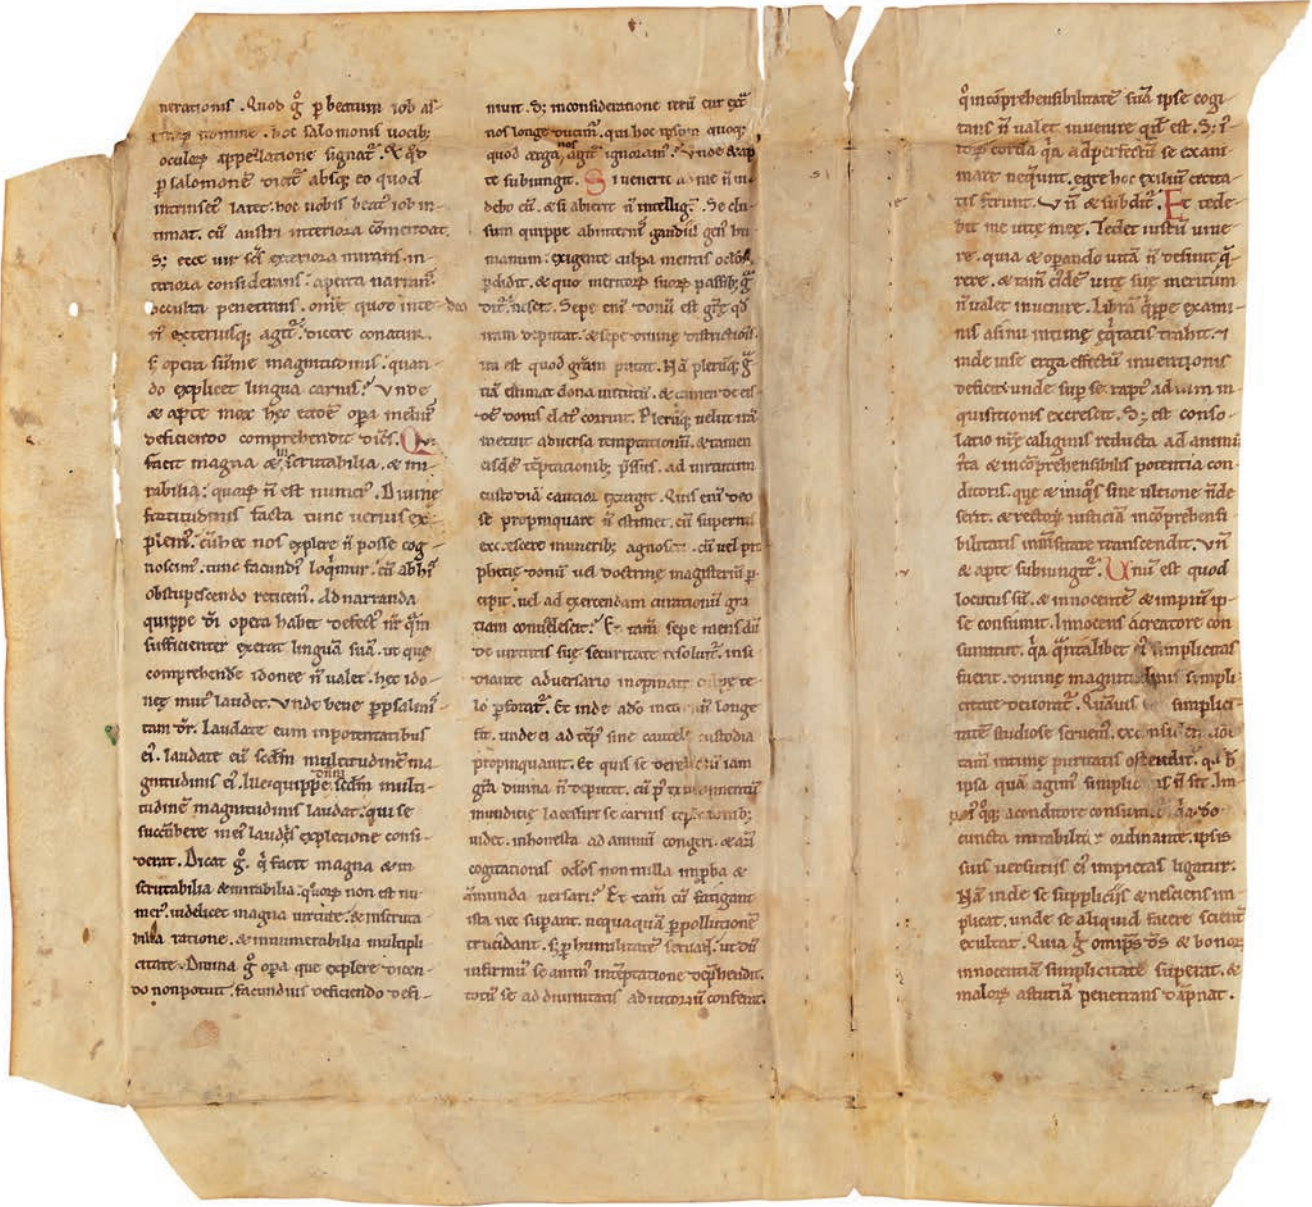 nerationis . Quod g̊ p beatum iob as-
nomine . hoc salomonis uocib;
appellatione signat᷑. Et qd̓
p salomonē dicit᷑ absq; eo quod
intrinsec᷒ latet. hoc nobis beat᷒ iob in-
timat. cū austri interiora cōmemorat.
S; ecce uir sc̄s exteriora mirans. in-
teriora considerans. aperta narrans.
occulta penetrans. om̄e quod inte-
ri᷒ exteriusq; agit᷑. dicere conatur.
S; opera sūme magnitudinis. quan-
do explicet lingua carnis? Vnde
& apte mox hec eadē opa meli᷒
deficiendo comprehendit dicēs. Qui
facit magna & inscrutabilia. & mi-
rabilia. quoꝝ n̄ est numer᷒. Diuine
fortitudinis facta tunc uerius ex-
plem᷒. cū hec nos explere n̄ posse cog-
noscim᷒. tunc facundi᷒ loqimur. cū ab his
obstupescendo reticem᷒. Ad narranda
quippe dī opera habet defect᷒ nr̄ q̄m
sufficienter exerat linguā suā. ut que
comprehendere idonee n̄ ualet. hec ido-
nee mut᷒ laudet. Vnde bene p psalmis-
tam dr̄. Laudate eum in potentatibus
ei᷒. laudate eū scdm̄ multitudinē ma
gnitudinis ei᷒. Ille quippe dn̄m scdm̄ multi-
tudinē magnitudinis laudat. qui se
succūbere in ei᷒ laudis expletione consi-
derat. Dicat g̊. q̓ facit magna & in
scrutabilia & mirabilia. quoꝝ non est nu
mer᷒. uidelicet magna uirtute. & inscruta
bilia ratione. & innumerabilia multipli
citate. Diuina g̊ opa que explere dicen-
do non potuit. facundius deficiendo defi-
niuit. S; in consideratione rerū cur ext̄
nos longe ducim᷒. qui hoc ipsum quoq;
quod erga nos agit᷑ ignoram᷒? Vnde & ap
te subiungit. Si uenerit ad me n̄ ui
debo eū. & si abierit n̄ intellig̃. Se clu-
sum quippe ab intern᷒ gaudiis gen᷒ hu
manum. exigente culpa mentis oc̄los
pdidit. & quo meritoꝝ suoꝝ passib; g̃
dit᷑ nescit. Sepe eni᷒ donū est gr̄e qd̓
iram deputat. & sepe diuine districtionis
ira est quod gr̄am putat. Nā pleruq; g̃
tiā estimat dona uirtutū. & tamen de eis-
dē donis elat᷒ corruit. Pleruq; uelut irā
metuit aduersa temptationū. & tamen
eisdē tēptationib; pssus. ad uirtutum
custodiā cautior exurgit. Quis eni᷒ deo
se propinquare n̄ estimet. cū supernis
excrescere munerib; agnoscit. cū uel pro
phetie donū uel doctrine magisteriū p-
cipit. uel ad exercendam curationū gra
tiam conualescit? Et tam̄ sepe mens dū
de uirtutis sue securitate resoluit᷑. insi
diante aduersario inopinate culpe te-
lo pforat᷑. Et inde a dō in et᷒nū longe
fit. unde ei ad tēp᷒ sine cautele custodia
propinquauit. Et quis se derelictū iam
gr̄a diuina n̄ deputet. cū p᷒ experimentū
mundicie lacessiri se carnis teptationib;
uidet. inhonesta ad animū congeri. & an̄
cogitationis oc̄los nonnulla inpba &
inmunda uersari? Et tam̄ cū fatigant
ista nec supant. nequaquā p pollutionē
trucidant. s; p humilitatē seruant. ut dū
infirmū se anim᷒ in tēptatione dephendit.
totū se ad diuinitatis adiutoriū conferat.
q̊ incōprehensibilitatē suā ipse cogi
tans n̄ ualet inuenire qd̓ est. S; i-
corda q̓a ad perfectū se exami
nare nequnt. egre hoc exiliū cecita
tis ferunt. Vn̄ & subdit᷑. Et tede-
bit me uite mee. Tedet iustū uiue
re. quia & opando uitā n̄ desinit q̄-
rere. & tam̄ ei᷒dē uite sue meritum
n̄ ualet inuenire. Librā q̓ppe exami
nis a sinu intime eq̓tatis trahit. &
inde in se erga effectū inuentionis
deficit unde sup se rapt᷒ ad uim in-
quisitionis excrescit. S; est conso-
latio nr̄e caliginis reducta ad animū
iusta & incōprehensibilis potentia con
ditoris. que & iniq᷒s sine ultione n̄ de
serit. & rectoꝝ iusticiā incōprehensi
bilitatis inm̄sitate transcendit. Vn̄
& apte subiungit᷑. Unū est quod
locutus sū. & innocentē & impiū ip-
se consumit. Innocens a creatore con
sumitur. q̓a q̄ntalibet ei᷒ simplicitas
fuerit. diuine magnitudinis simpli-
citate deuorat᷑. Quāuis simplici-
tatē studiose seruem᷒. ex consideratione
tam̄ intime puritatis ostendit᷑. qd̓ h
ipsa quā agim᷒ simplicitas n̄ sit. Im-
pi᷒ q̊q; a conditore consumit᷑. q̓a dō
cuncta mirabilit᷒ ordinante. ipsis
suis uersutiis ei᷒ impietas ligatur.
Nā inde se suppliciis & nesciens im-
plicat. unde se aliquid facere scient᷒
exultat. Quia g̊ omips dˢ & bonoꝝ
innocentiā simplicitate superat. &
maloꝝ astutiā penetrans dāpnat.